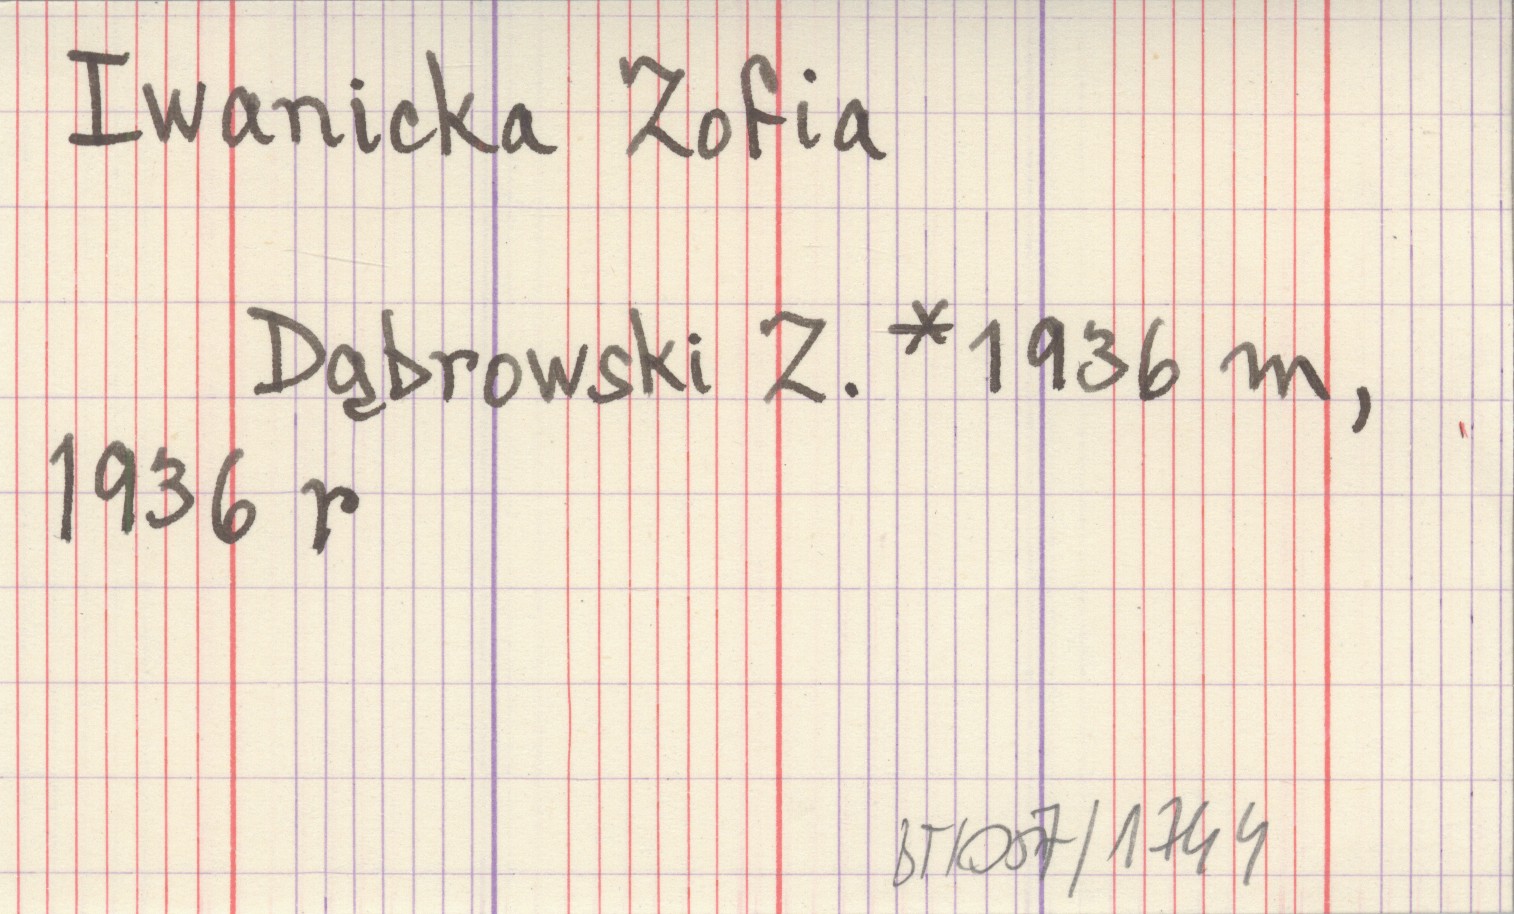 Iwanicka Zofia
Dąbrowski Z. *1936 m,
1936 r
/1744